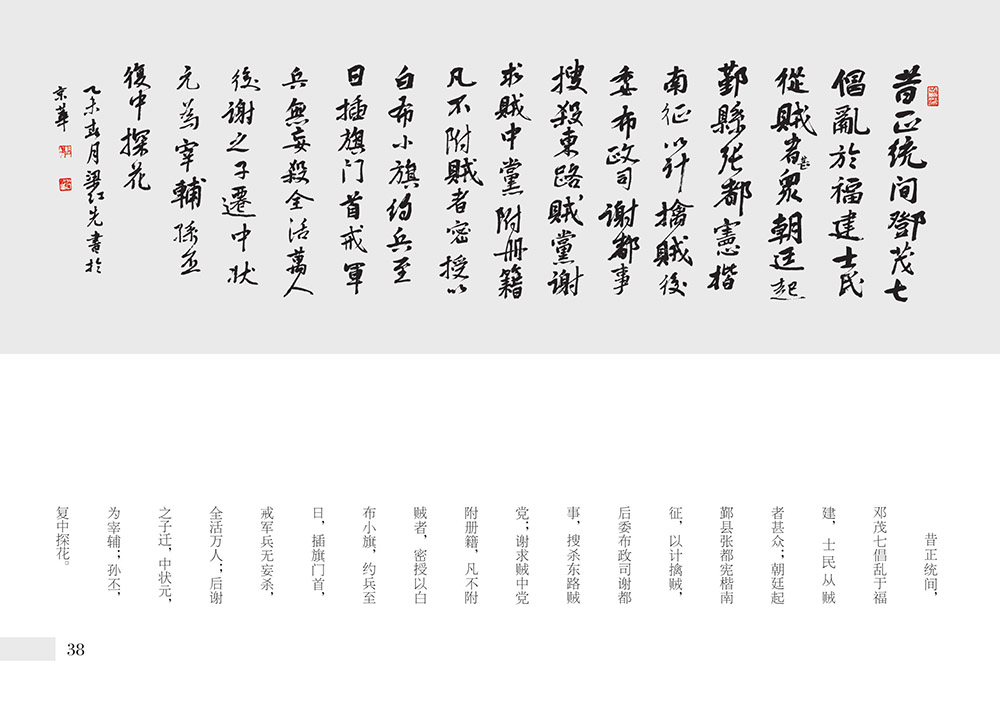 昔正统间鄧茂七
倡亂於福建士民
從賊者甚眾朝廷起
鄞縣张都憲楷
南征以计擒賊後
委布政司谢都事
搜殺東路賊黨谢
求賊中黨附册籍
凡不附賊者密授以
白布小旗约兵至
日插旗门首戒軍
兵無妄殺全活萬人
後谢之子遷中状
元為宰輔孫丕
復中探花
乙未春月梁红先書於
京華
昔正统间，
邓茂七倡乱于福
建，士民从贼
者甚众；朝廷起
鄞县张都宪楷南
征，以计擒贼，
后委布政司谢都
事，搜杀东路贼
党；谢求贼中党
附册籍，凡不附
贼者，密授以白
布小旗，约兵至
日，插旗门首，
戒军兵无妄杀，
全活万人；后谢
之子迁，中状元，
为宰辅；孙丕，
复中探花。
38